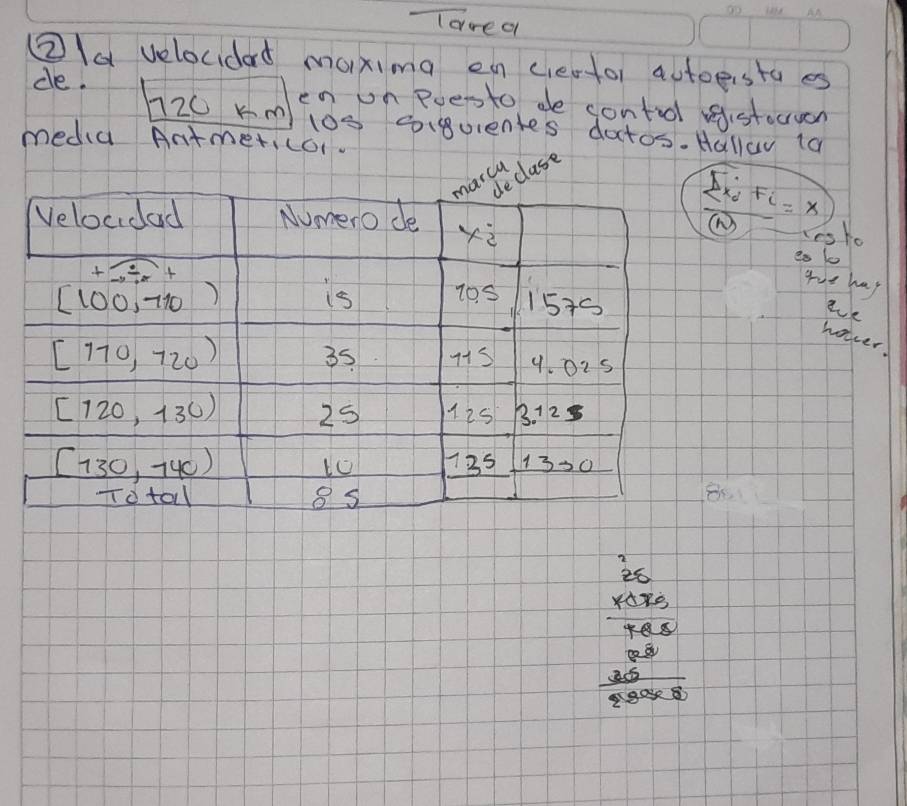 Tarea
DD MM AA
② la velocidad maxima en cierta autopista es
de. 120 Km en un Puesto de control registraron
los siguientes datos. Hallar la
media Aritmetica.
marca de clase
Velocidad Numero de xi
Σxi fi = x
N
esto
es lo
que hay
que
hacer.
+ ÷ +
[100, 110) 15 105 1575
[110, 120) 35 115 4.025
[120, 130) 25 125 3.125
[130, 140) 10 135 1350
Total 85